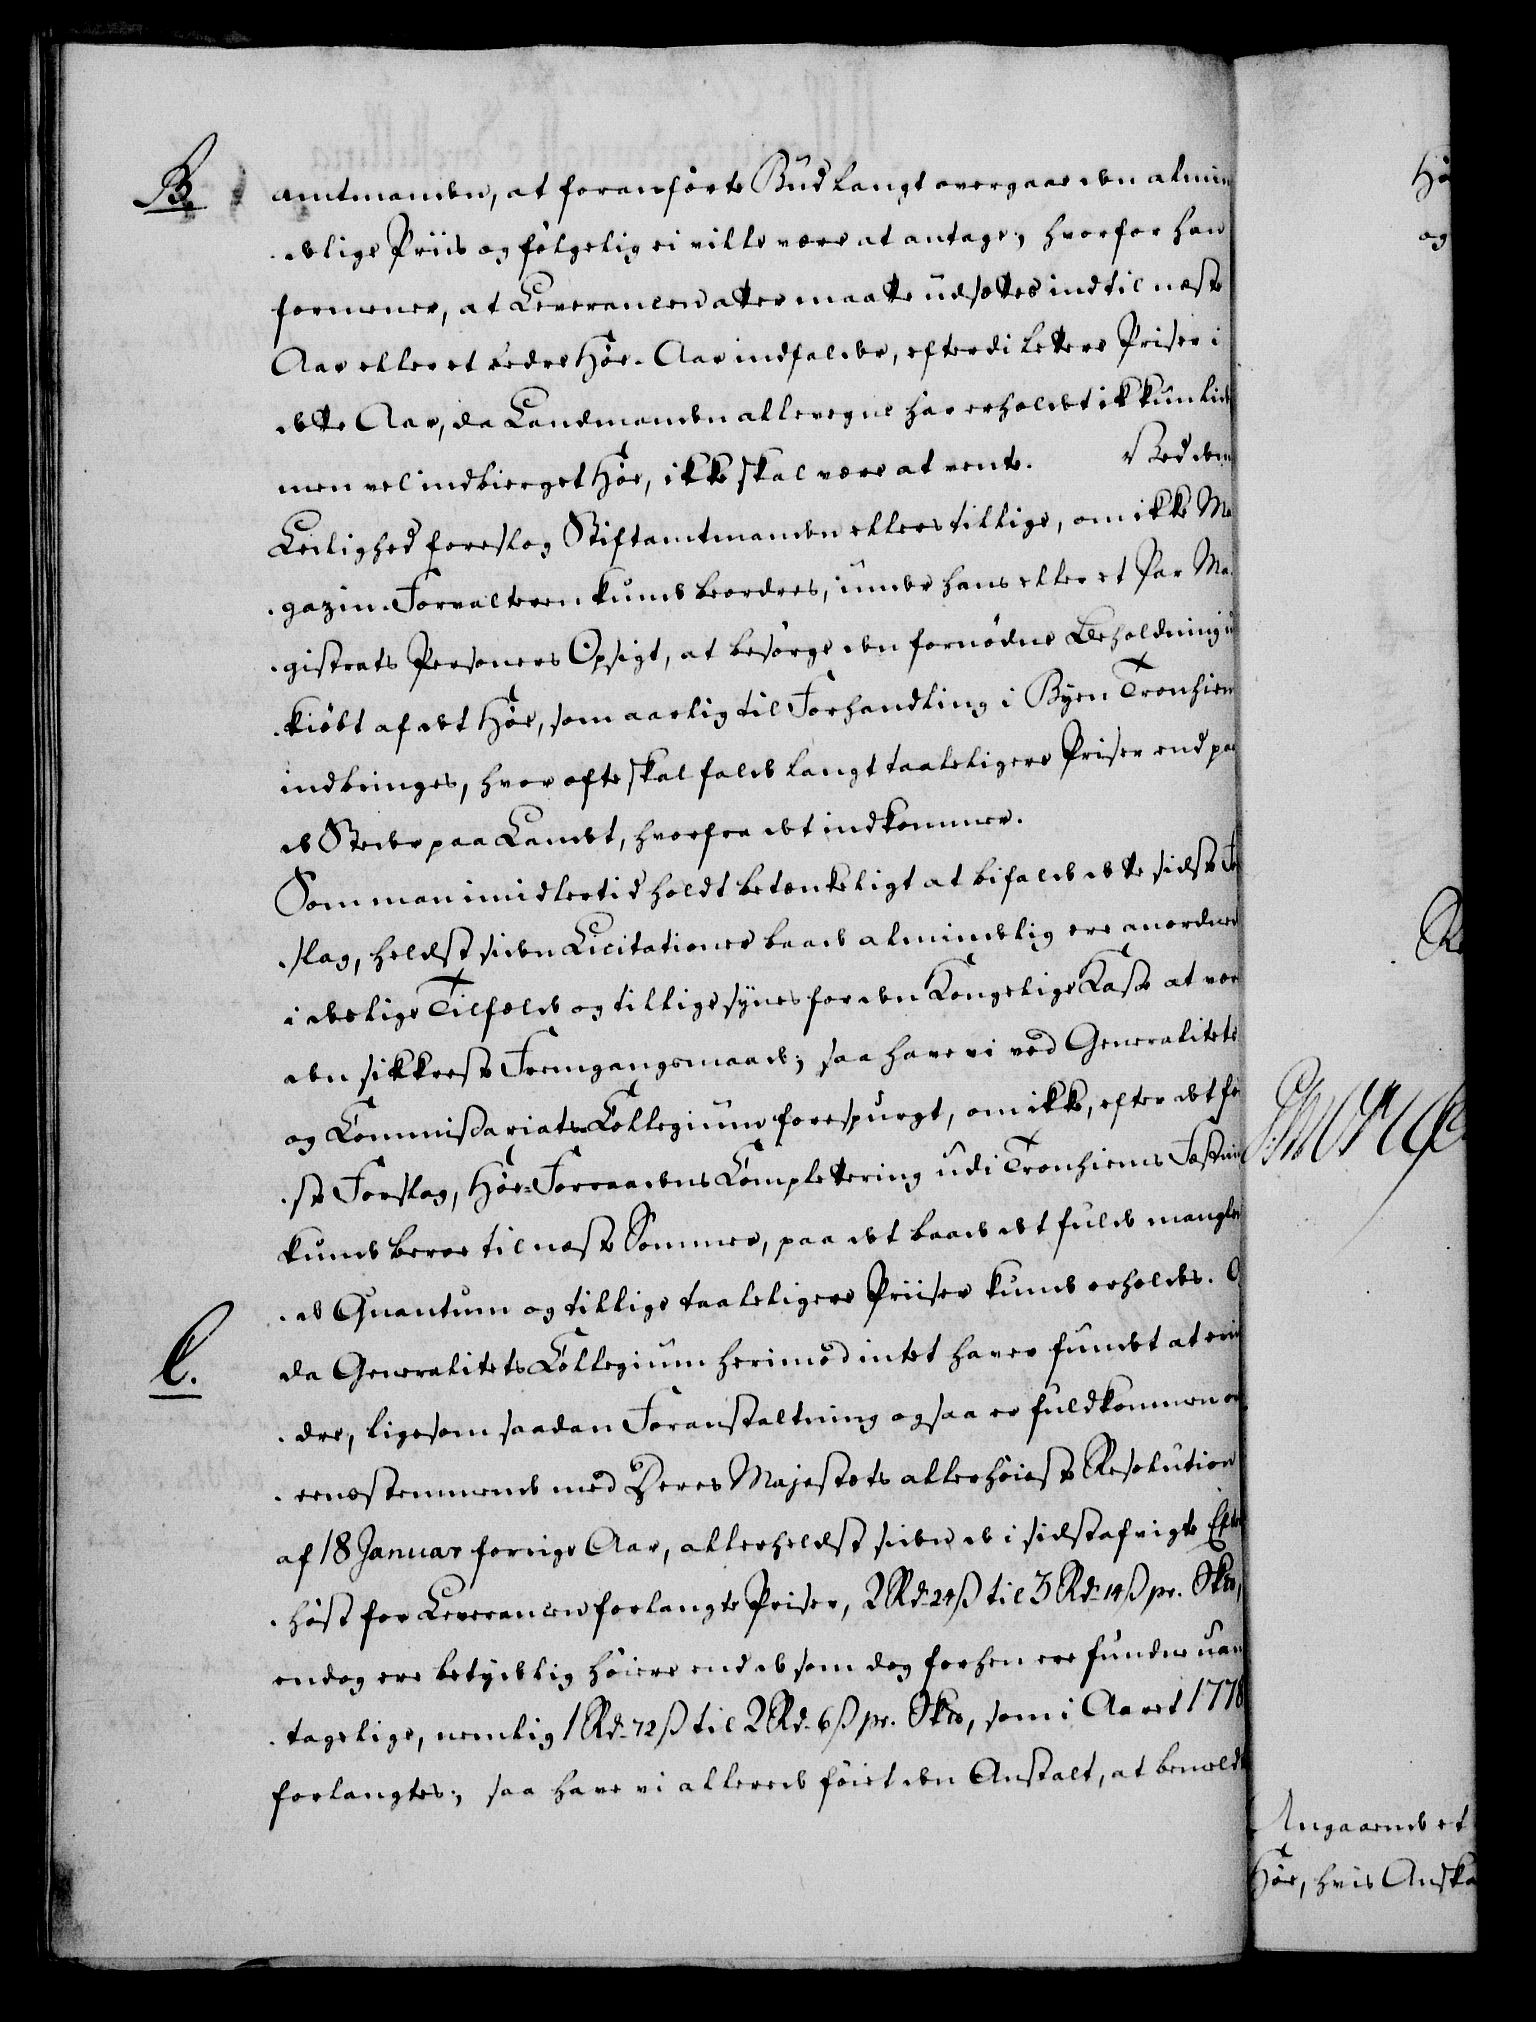 B.
amtmanden, at foranførte Bud langt overgaae den almin
delige Priis og følgelig ei ville være at antage; hvorfor han
formener, at Leverancen atter maatte udsættes indtil næste
Aar eller et bedre Høe-Aar indfalder, efterdi lettere Priser i
dette Aar, da Landmanden allevegne har erholdet ikkun lidet
men vel indbierget Høe, ikke skal være at vente. Ved den
Leilighed foreslog Stiftamtmanden ellers tillige, om ikke Ma
gazin-Forvalteren kunde beordres, under hans eller et Par Ma
gistrats Personers Opsigt, at besørge den fornødne Beholdning
kiøbt af det Høe, som aarlig til Forhandling i Byen Tronhiem
indbringes, hvor ofte skal falde langt taaleligere Priser end paa
de Steder paa Landet, hvorfra det indkommer.
Som man imidlertid holdt betænkeligt at bifalde dette sidste For
slag, heldst siden Licitationer baade almindelig ere anordnede
i deslige Tilfælde og tillige synes for den Kongelige Kasse at være
den sikkreste Fremgangsmaade; saa have vi ved Generalitets
og Commissariats-Collegium forespurgt, om ikke, efter det før
ste Forslag, Høe-Forraadens Complettering udi Tronhiems Fæstning
kunde beroe til næste Sommer, paa det baade det fulde manglen
de Quantum og tillige taaleligere Priiser kunde erholdes. Og
da Generalitets Collegium herimod intet haver fundet at erin
dre, ligesom saadan Foranstaltning ogsaa er fuldkommen ov
erensstemmende med Deres Majestets allerhøieste Resolution
af 18 Januar forrige Aar, allerheldst siden de i sidstafvigte Efter
høst for Leverancen forlangte Priser, 2 Rd. 24 ß til 3 Rd. 14 ß pr. Skd,
endog ere betydelig høiere end de som dog forhen ere fundne uan
tagelige, nemlig 1 Rd. 72 ß til 2 Rd. 6 ß pr. Skd, som i Aaret 1778
forlangtes; saa have vi allerede føiet den Anstalt, at bemeldte
C.
Hø
og
Angaaende et
Høe, hvis Anska